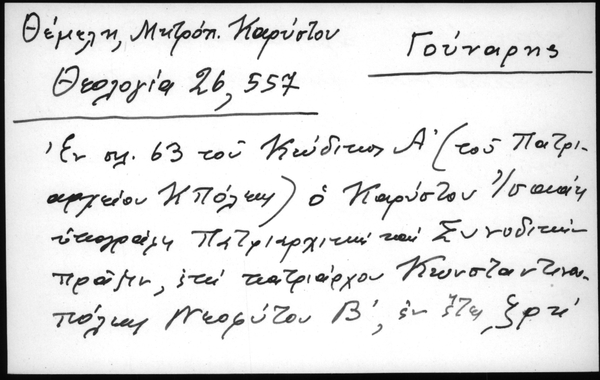 Θέμελη, Μητρόπ. Καρύστου
Γούναρης
Θεολογία 26, 557
Ἐν σελ. 63 τοῦ Κώδικος Α' (τοῦ Πατρι-
αρχείου ΚΠόλεως) ὁ Καρύστου Ἰσαὰκ
ὑπογράφει Πατριαρχικὴν καὶ Συνοδικὴν
πρᾶξιν, ἐπὶ πατριάρχου Κωνσταντινου-
πόλεως Νεοφύτου Β', ἐν ἔτει ͵ζρκ'